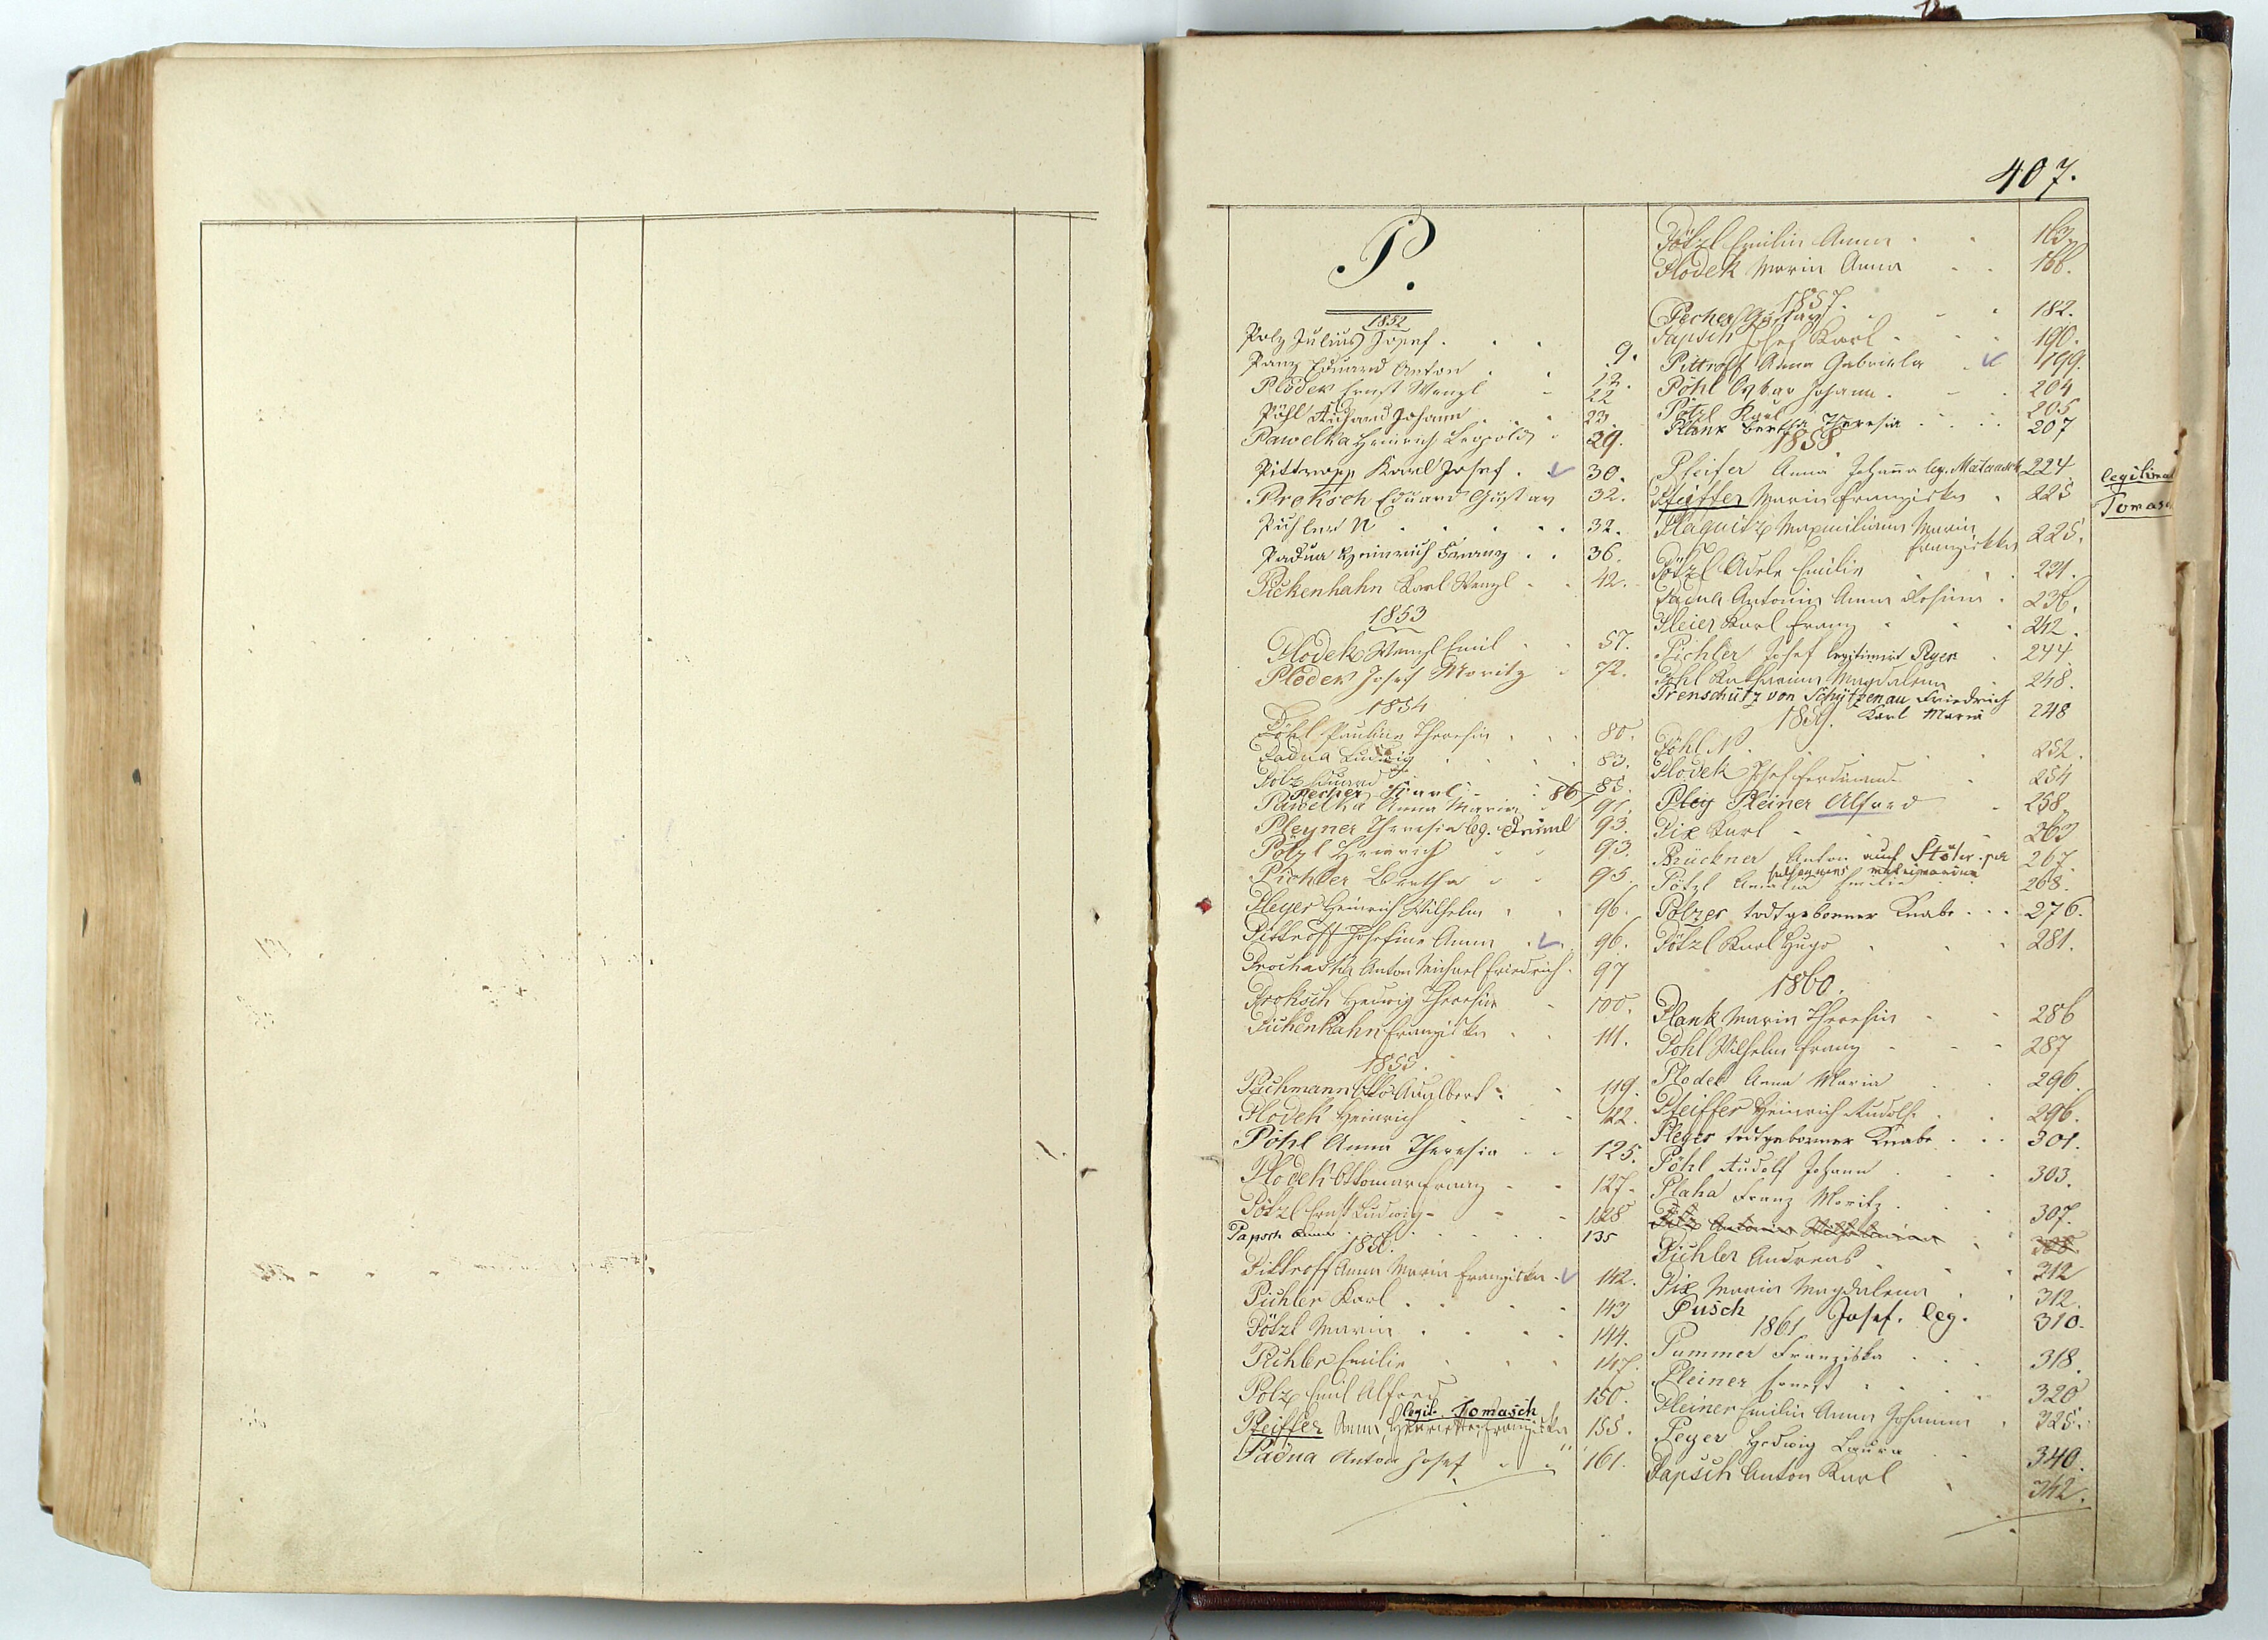 407.
P.
1852
Polz Julius Josef . . . 9.
Panz Eduard Anton . . 12.
Plodek Ernst Wenzl - 22
Pöhl Richard Johann . . . 23
Pawelka Heinrich Leopold . 29.
Pittroff Karl Josef . 30.
Proksch Eduard Gustav 32.
Pichler N . . . . . 32.
Padua Heinrich Franz . . 36.
Pickenhahn Karl Wenzl - - 42.
1853
Plodek Wenzl Emil . . 57.
Plodek Josef Moritz . 72.
1854
Pöhl Pauline Theresia . . . 80.
Padua Ludwig . . . . 83.
Polz Eduard 85.
Pecher Karl - . 86
Pawelka Anna Maria 91.
Pleyner Theresia leg. 93.
Pötzl Heinrich 93.
Pichler Bertha 95.
Pleyer Heinrich Wilhelm . . 96.
Pittroff Josefine Anna . 96.
Prochaska Anton Michael Friedrich . 97
Proksch Hedwig Theresia - 100.
Pickenhahn Franziska . . 111.
1855.
Pachmann Otto Adalbert - 119.
Plodek Heinrich . . - 122.
Pöhl Anna Theresia - - 125.
Plodek Ottomar Franz - - 127.
Pötzl Ernst Ludwig - - - 128
Papsch Anna . . . . . 135
1856.
Pittroff Anna Maria Franziska . 142.
Pichler Karl . . . . 143
Pötzl Maria . . . . 144.
Pichler Emilie . . . 147.
Polz Emil Alfred 150.
legit. Tomasch
Pfeiffer Anna Henriette Franziska 155.
Padua Anton Josef . . " 161.
Pötzl Emilie Anna . . 163.
Plodek Maria Anna . . 166.
1857.
Pecher Gustav . . . 182.
Papsch Josef Karl . . . 190.
Pittroff Anna Gabriela . 199.
Pöhl Oskar Johann . - . 204
Pötzl Karl . . . 205
Plank Bertha Theresia . . . . 207
1858
Pfeifer Anna Johanna leg. Matausch 224
Pfeiffer Maria Franziska . 225
legitimat
Tomasch
Plaquitz Maximiliana Maria
Franziska 225.
Pötzl Adele Emilie . . 231.
Padua Antonia Anna Rosina . 236.
Pleier Karl Franz . . . 242.
Pichler Josef legitimirt Peyer . 244
Pöhl Katharina Magdalena . 248.
Prenschütz von Schützenau Friedrich
Karl Maria 248
1859.
Pöhl N. . . . 252.
Plodek Josef Ferdinand . 254
Pley Pleiner Alfred . 258.
Pix Karl - . . 263
Prückner Anton auf Stöhr per
subsequens matrimonium 267.
Pötzl Amalia Emilie 268.
Polzer todtgeborner Knabe . . . 276.
Pötzl Karl Hugo . . . 281.
1860.
Plank Maria Theresia . . 286
Pohl Wilhelm Franz - - - 287
Plodek Anna Maria . . 296.
Pfeiffer Heinrich Rudolf . . 296.
Pleyer todtgeborner Knabe . . . 301.
Pöhl Rudolf Johann . . . 303.
Plaha Franz Moritz . . . 307.
Pichler Andreas . . . 312
Pix Maria Magdalena . . 312.
Pusch Josef. leg. 310.
1861
Pummer Franziska . . . 318.
Pleiner Ernest . . . . 320
Pleiner Emilie Anna Johanna . 325.
Peyer Hedwig Laura . . 340.
Papsch Anton Karl . 342.